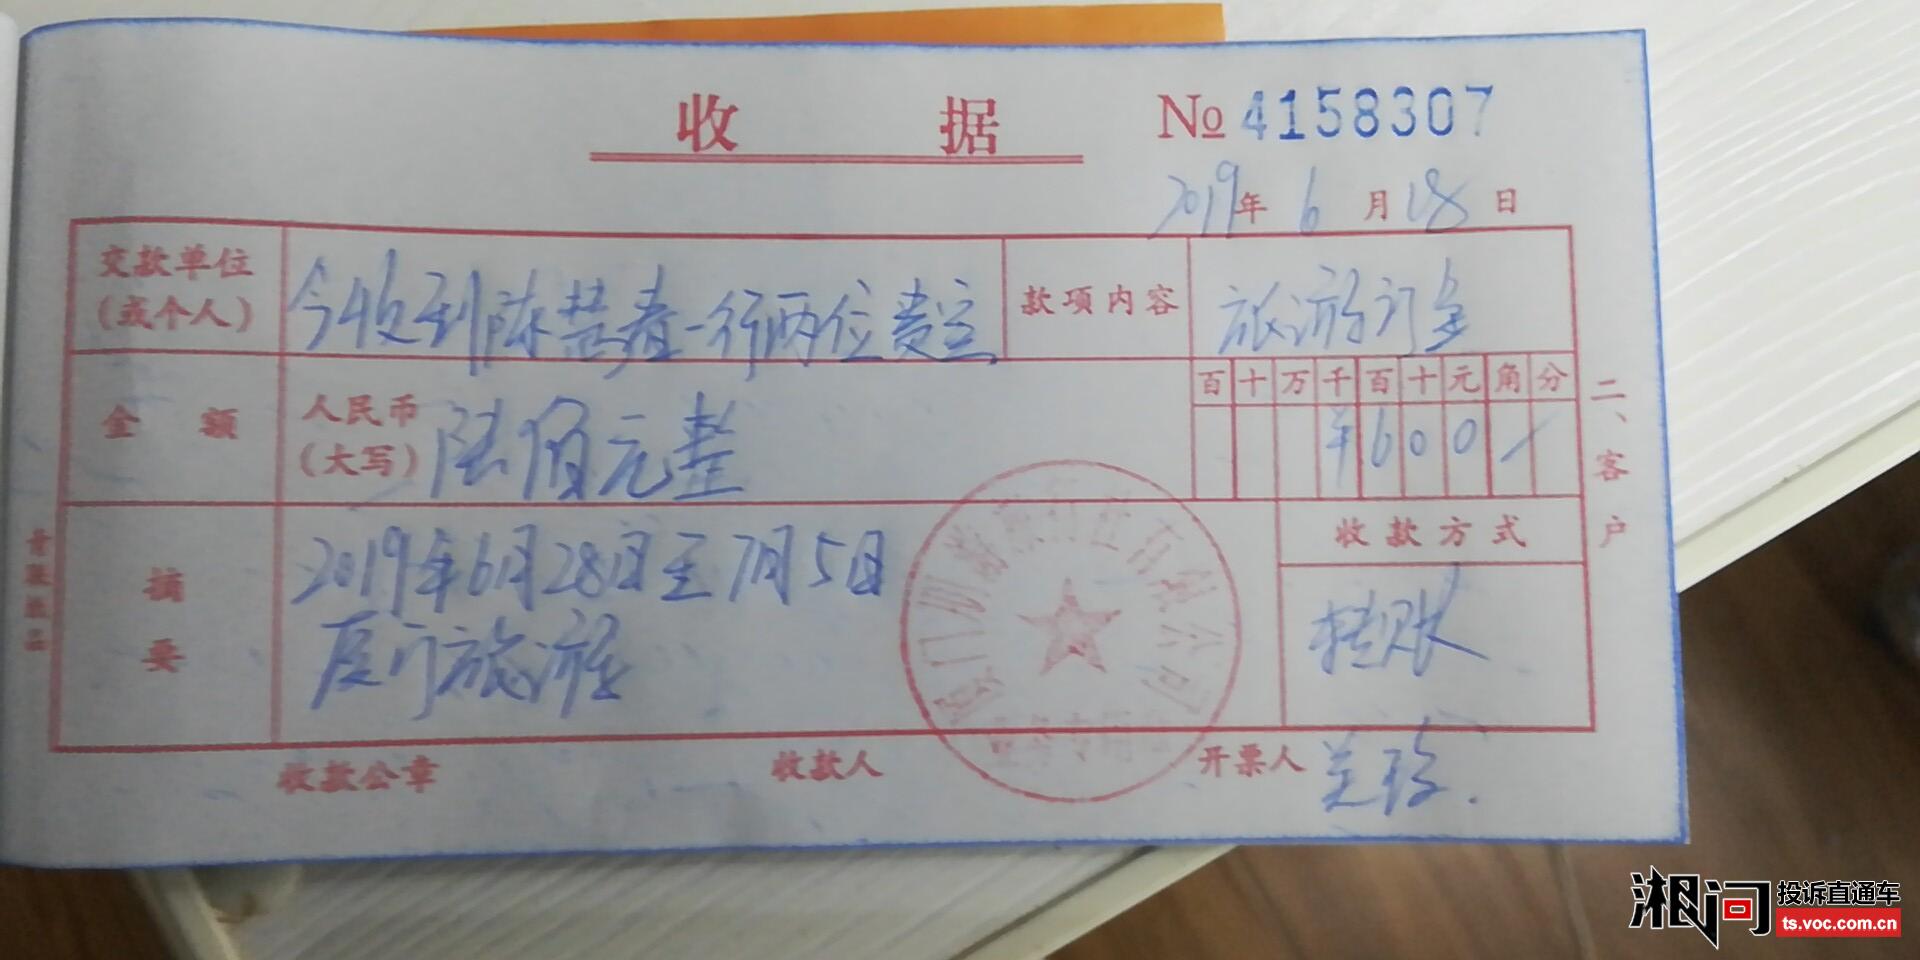 收 据
No 4158307
2019年 6月 18日
交款单位
(或个人)
今收到陈 春一行两位贵宾
款项内容
旅游订金
金 额
人民币
(大写)
陆佰元整
百 十 万 千 百 十 元 角 分
¥ 6 0 0
二、客户
摘要
2019年6月28日至7月5日
厦门旅游
收款方式
转账
旅行社有限公司
业务专用章
收款公章
收款人
开票人
湘问 投诉直通车
ts.voc.com.cn